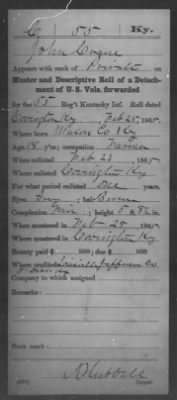 C 55 Ky.
John
Appears with rank of Private on
Muster and Descriptive Roll of a Detachment
of U. S. Vols. forwarded
for the 55 Reg't Kentucky Inf. Roll dated
Covington Ky Feb 25, 1865.
Where born Mason Co Ky
Age 18 y'rs; occupation Farmer
When enlisted Feb 23, 1865
Where enlisted Covington Ky
For what period enlisted One years.
Eyes Grey; hair Brown
Complexion Fair; height 5 ft. in.
When mustered in Feb 25, 1865
Where mustered in Covington Ky
Bounty paid $ 100; due $ 100
Where credited
Company to which assigned
Remarks:
Book mark:
Hubbell
Copyist.